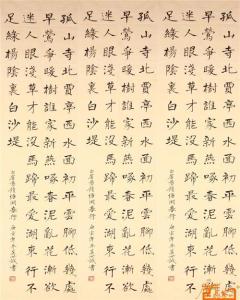 孤山寺北賈亭西水面初平雲腳低幾處
早鶯爭暖樹誰家新燕啄春泥亂花漸欲
迷人眼淺草才能沒馬蹄最愛湖東行不
足綠楊陰裏白沙堤
白居易錢塘湖春行
孤山寺北賈亭西水面初平雲腳低幾處
早鶯爭暖樹誰家新燕啄春泥亂花漸欲
迷人眼淺草才能沒馬蹄最愛湖東行不
足綠楊陰裏白沙堤
白居易錢塘湖春行
孤山寺北賈亭西水面初平雲腳低幾處
早鶯爭暖樹誰家新燕啄春泥亂花漸欲
迷人眼淺草才能沒馬蹄最愛湖東行不
足綠楊陰裏白沙堤
白居易錢塘湖春行